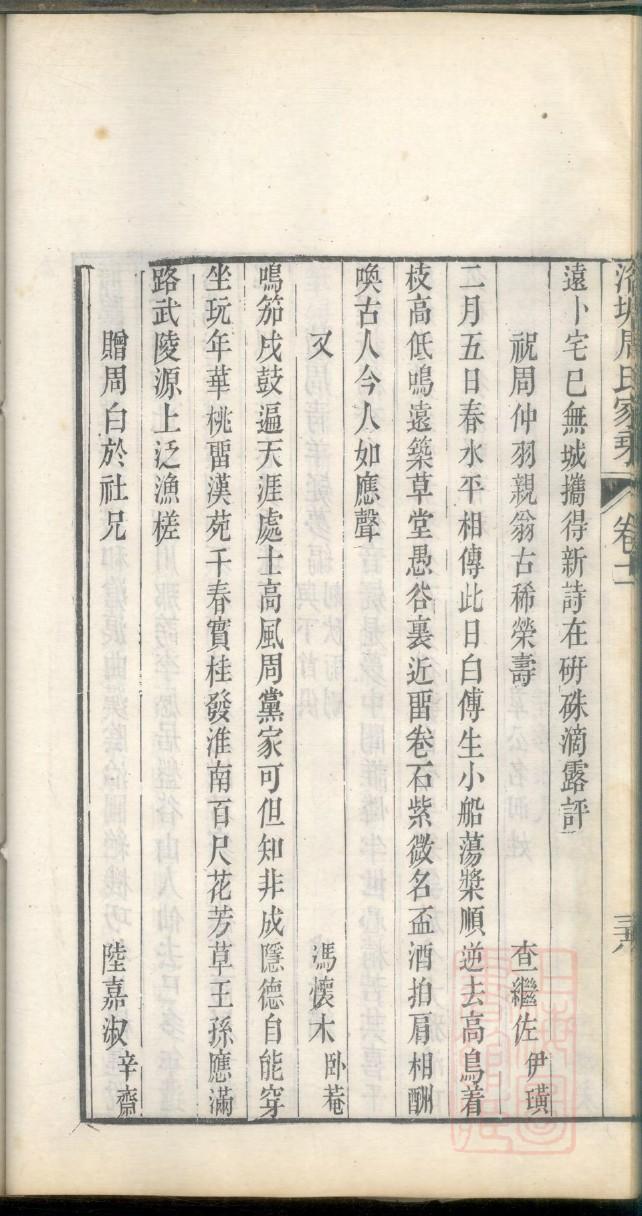 洛塘周氏家乘 卷十二 三六
遠卜宅已無城攜得新詩在硏硃滴露評
祝周仲羽親翁古稀榮壽 查繼佐伊璜
二月五日春水平相傳此日白傅生小船蕩槳順逆去高鳥着
枝高低鳴遠築草堂愚谷裏近畱卷石紫微名盃酒拍肩相酬
喚古人今人如應聲
又 馮懷木卧菴
鳴笳戍鼓遍天涯處士高風周黨家可但知非成隱德自能穿
坐玩年華桃畱漢苑千春實桂發淮南百尺花芳草王孫應滿
路武陵源上泛漁槎
贈周白於社兄 陸嘉淑辛齋